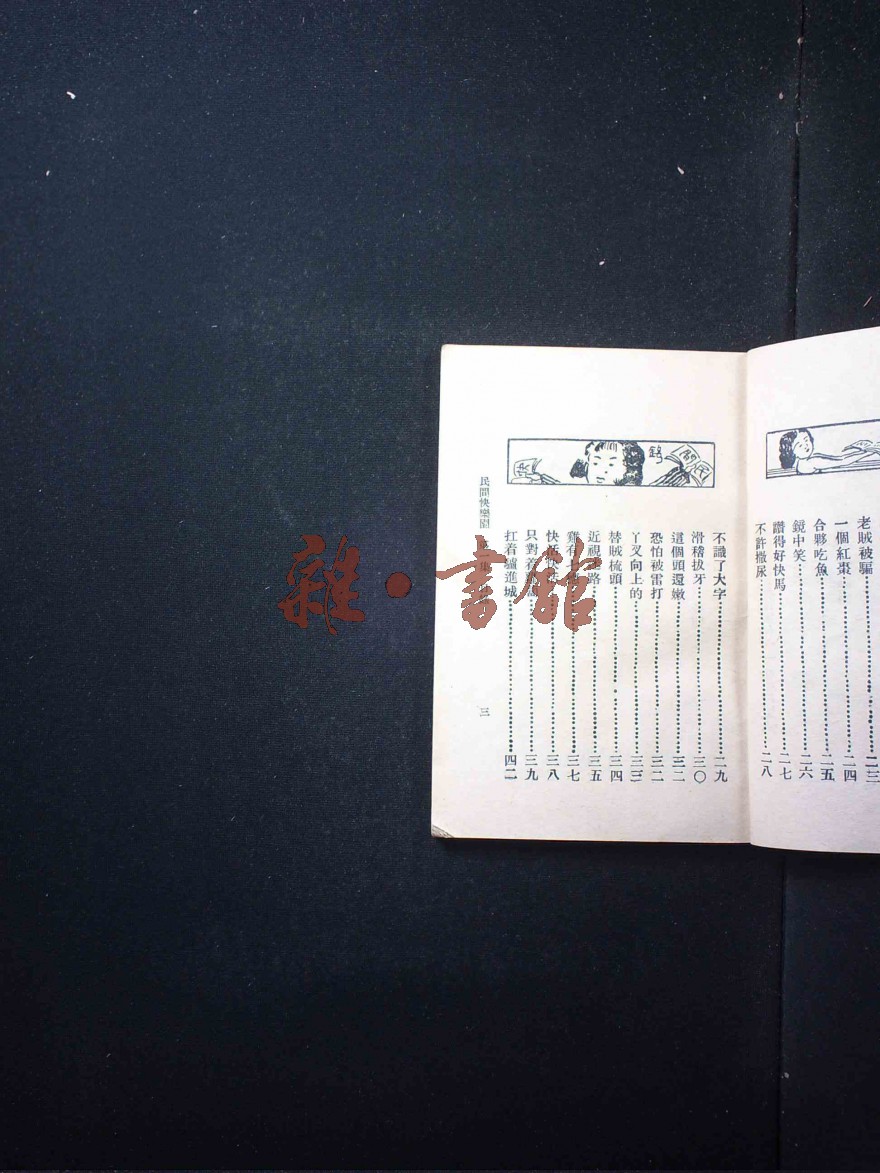 老賊被騙……二三
一個紅棗……二四
合夥吃魚……二五
鏡中笑……二六
讚得好快馬……二七
不許撒尿……二八
民間
不識了大字……二九
滑稽拔牙……三〇
這個頭還嫩……三二
恐怕被雷打……三二
丫叉向上的……三三
替賊梳頭……三四
近視 路……三五
雞有……三七
快活……三八
只對着……三九
扛着驢進城……四二
民間快樂園 集
三
雜·書館